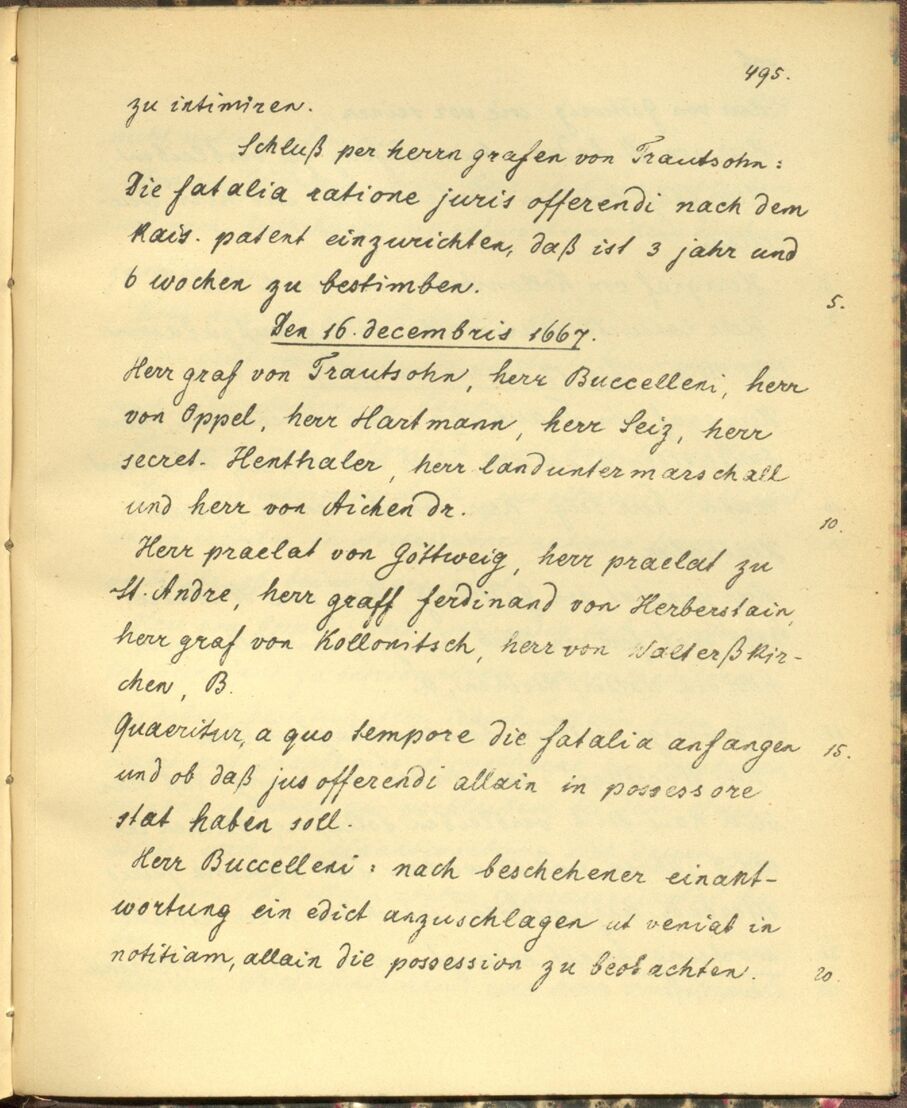 495.
zu intimiren.
Schluß per herrn grafen von Trautsohn:
Die fatalia ratione juris offerendi nach dem
Kais. patent einzurichten, daß ist 3 jahr und
6 wochen zu bestimben.
5.
Den 16. decembris 1667.
Herr graf von Trautsohn, herr Buccelleni, herr
von Oppel, herr Hartmann, herr Seiz, herr
secret. Henthaler, herr landuntermarschall
und herr von Aichen Dr.
10.
Herr praelat von Göttweig, herr praelat zu
St. Andre, herr graff ferdinand von Herberstain,
herr graf von Kollonitsch, herr von Walterßkir-
chen, B.
Quaeritur, a quo tempore die fatalia anfangen
15.
und ob daß jus offerendi allain in possessore
stat haben soll.
Herr Buccelleni: nach beschehener einant-
wortung ein edict anzuschlagen ut veniat in
notitiam, allain die possession zu beobachten.
20.